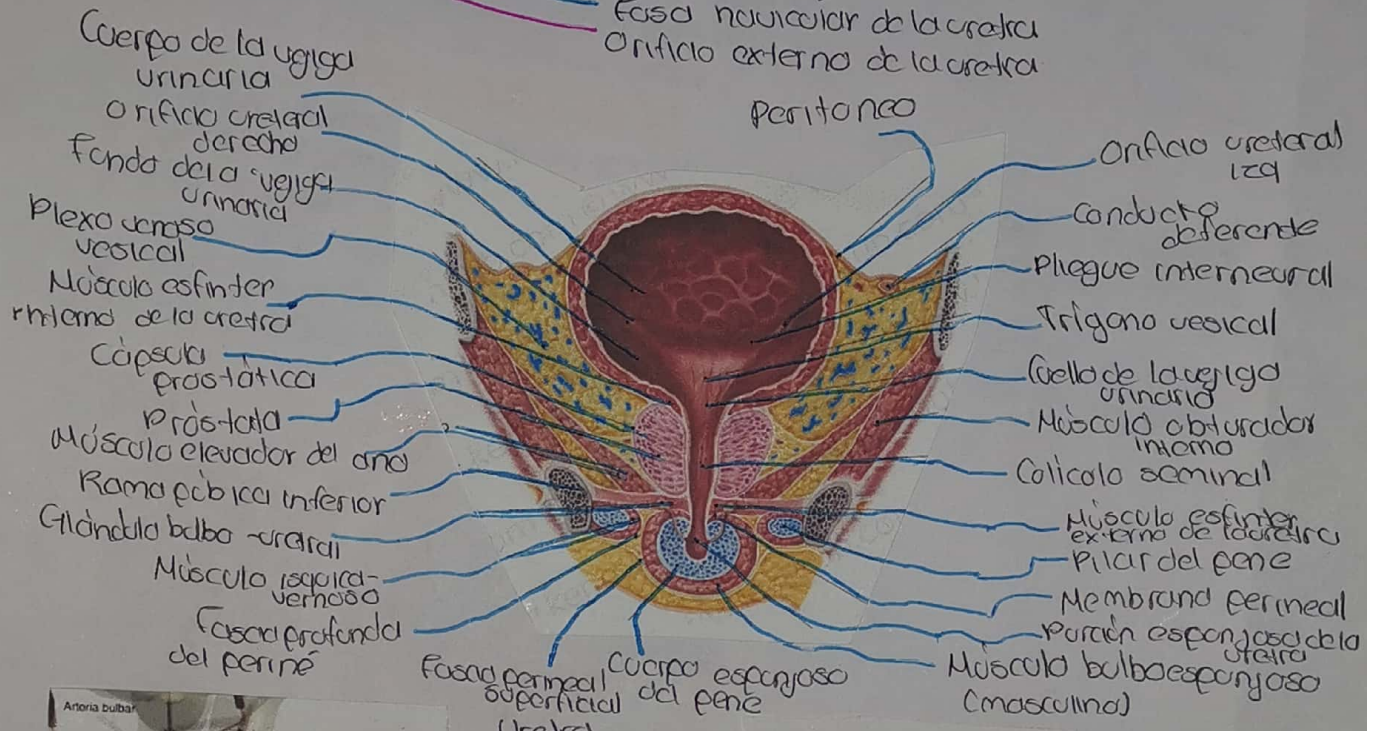 Fosa navicular de la uretra
Orificio externo de la uretra
Cuerpo de la vejiga
urinaria
Orificio ureteral
derecho
Fondo de la vejiga
urinaria
Plexo venoso
vesical
Músculo esfinter
interno de la uretra
Cápsula
prostática
Próstata
Músculo elevador del ano
Rama púbica inferior
Glándula bulbo-uretral
Músculo isquioca-
vernoso
Fascia profunda
del periné
Fascia perineal
superficial
Cuerpo esponjoso
del pene
Peritoneo
Orificio ureteral
izq
Conducto
deferente
Pliegue interneural
Trígono vesical
Cuello de la vejiga
urinaria
Músculo obturador
interno
Colículo seminal
Músculo esfinter
externo de la uretra
Pilar del pene
Membrana perineal
Porción esponjosa de la
uretra
Músculo bulboesponjoso
(masculino)
Arteria bulbar